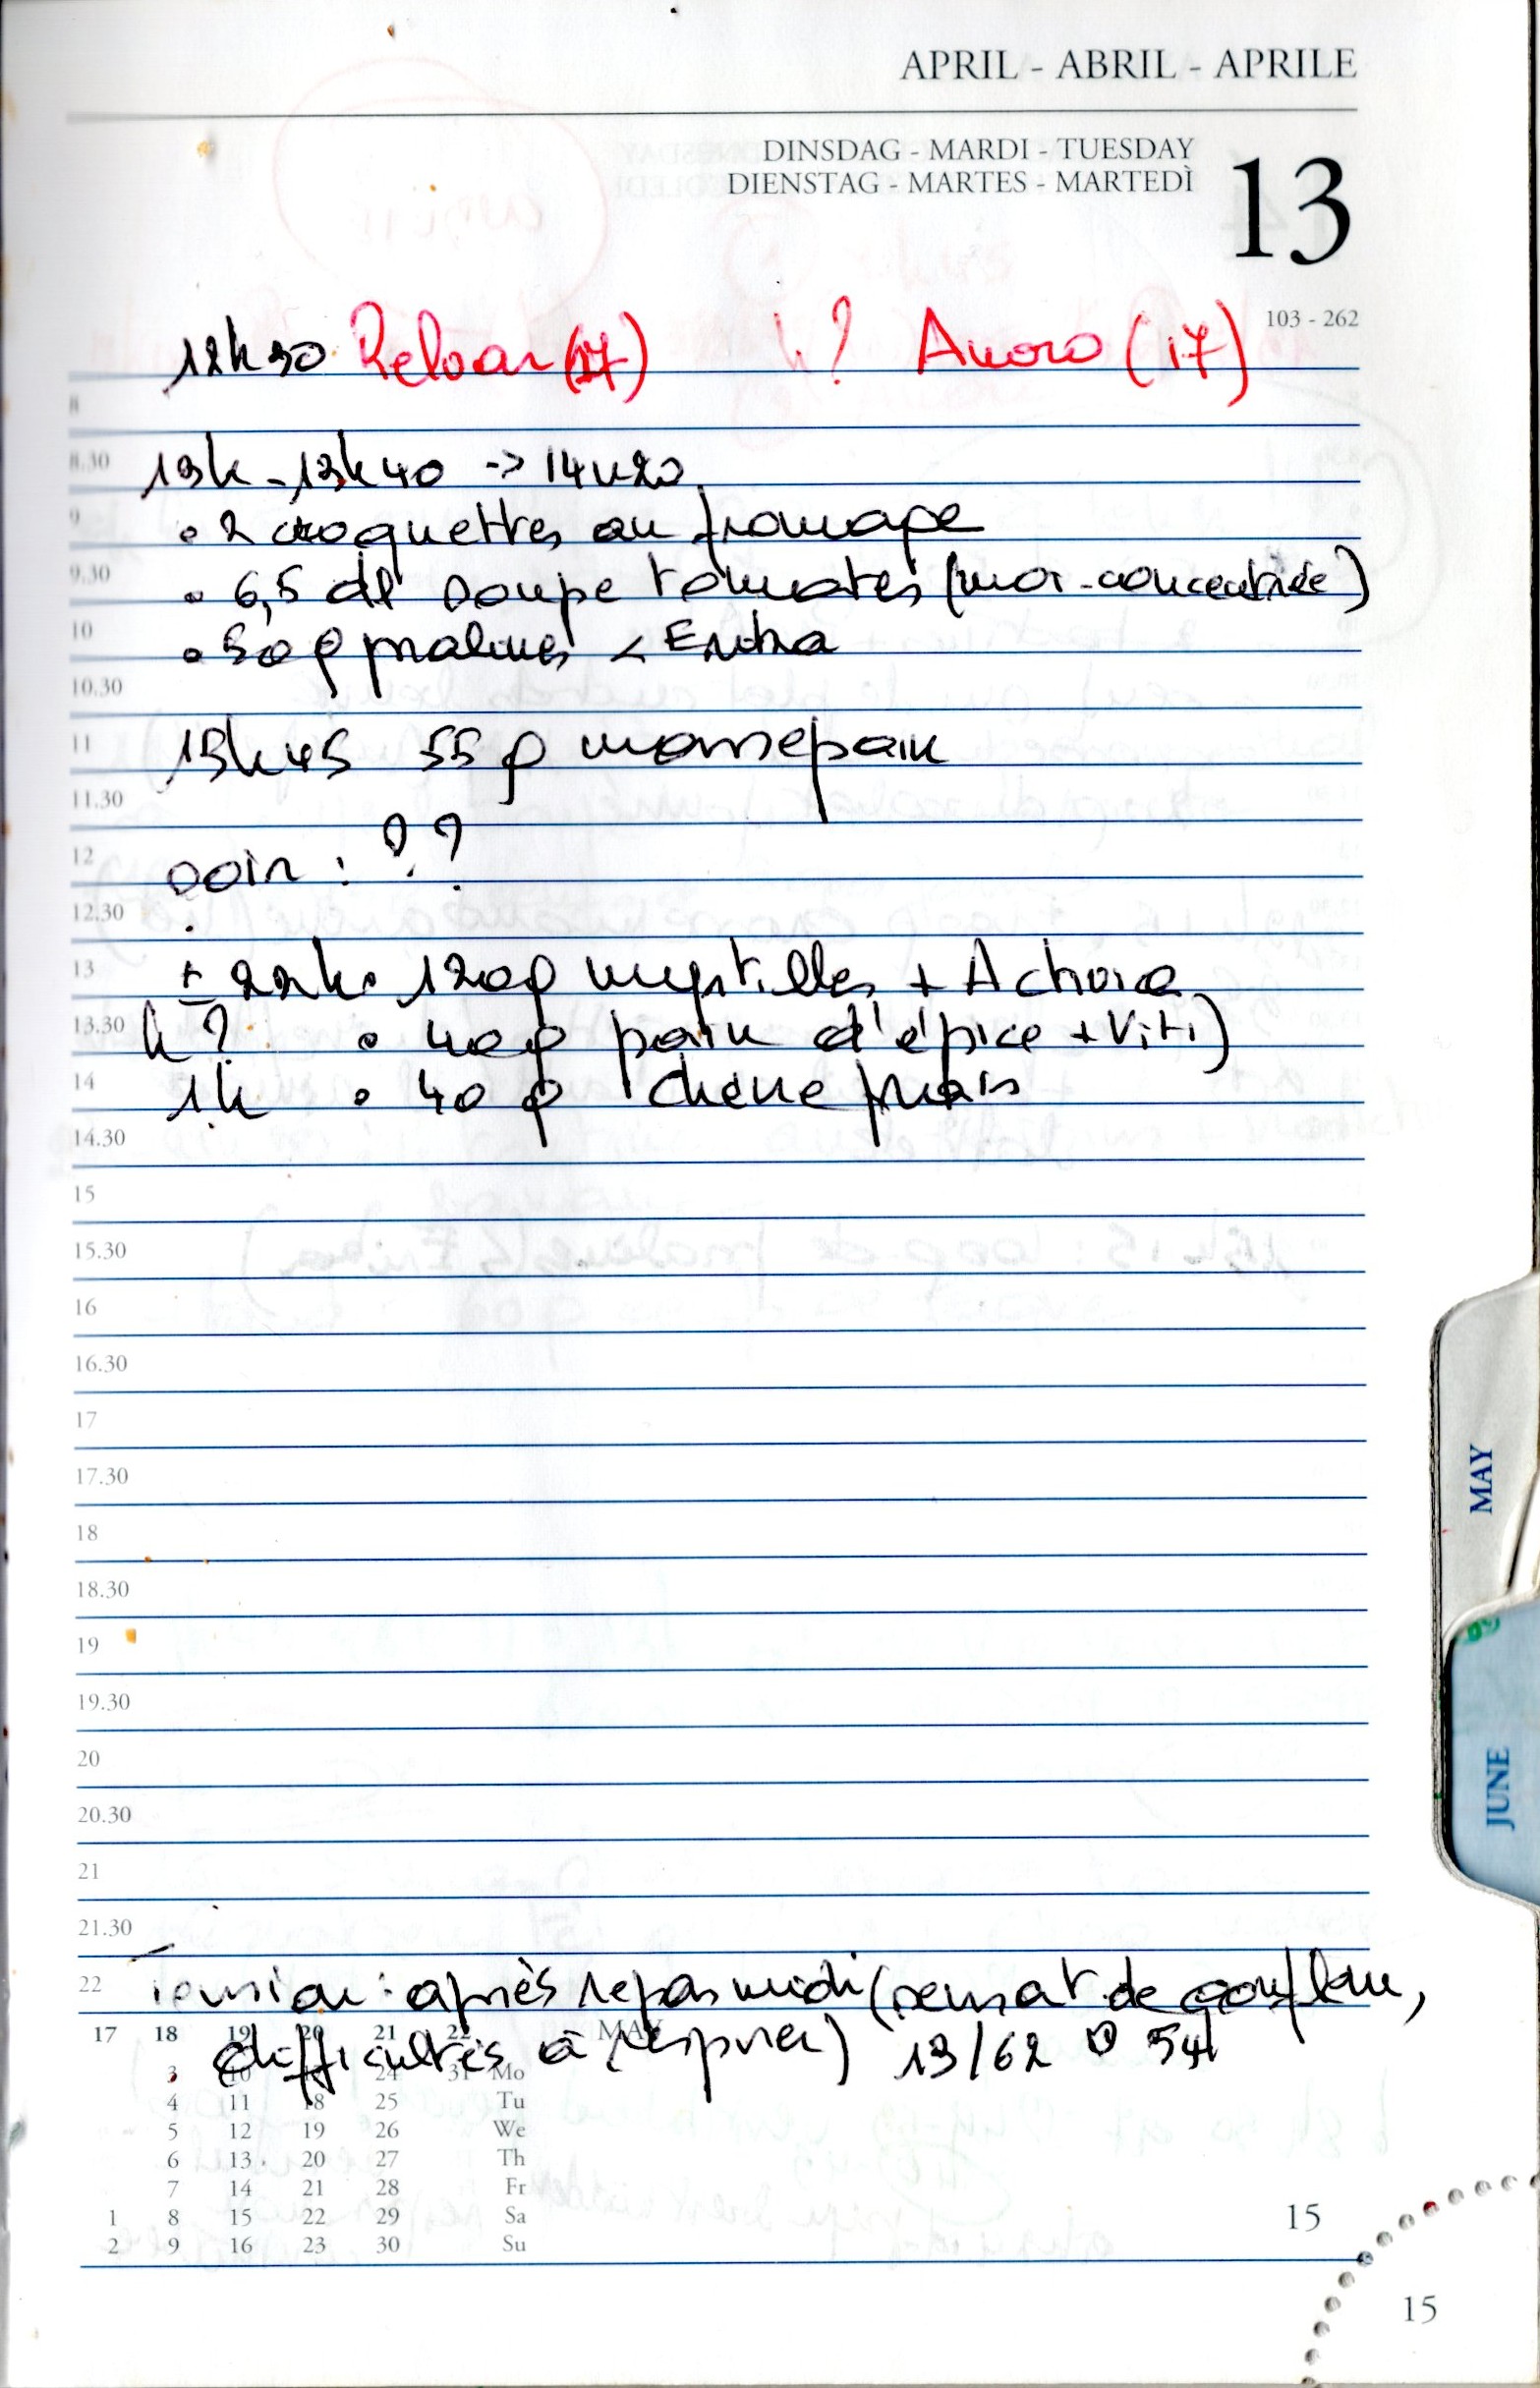 APRIL - ABRIL - APRILE
DINSDAG - MARDI - TUESDAY
DIENSTAG - MARTES - MARTEDÌ
13
103 - 262
12h30 Reloar (17) h? Anoro (17)
8
8.30 13h - 13h40 -> 14h20
9 • 2 croquettes au fromage
9.30 • 6,5 dl soupe tomates (moi-concentrée)
10 • 50g pralines < Entra
10.30
11 15h45 55g massepain
11.30
12 soir : ??
12.30
13 ± 22h • 120g myrtilles + A choco
13.30 h? • 40g pain d'épice + Viti)
14 1h • 40g chèvre frais
14.30
15
15.30
16
16.30
17
17.30
18
18.30
19
19.30
20
20.30
21
21.30
22 Tension : après repas midi (sensat. de gonflem,
difficultés à respirer) 13/62 54
17 18 19 20 21 22 MAY
3 10 24 31 Mo
4 11 18 25 Tu
5 12 19 26 We
6 13 20 27 Th
7 14 21 28 Fr
1 8 15 22 29 Sa
2 9 16 23 30 Su
15
15
MAY
JUNE